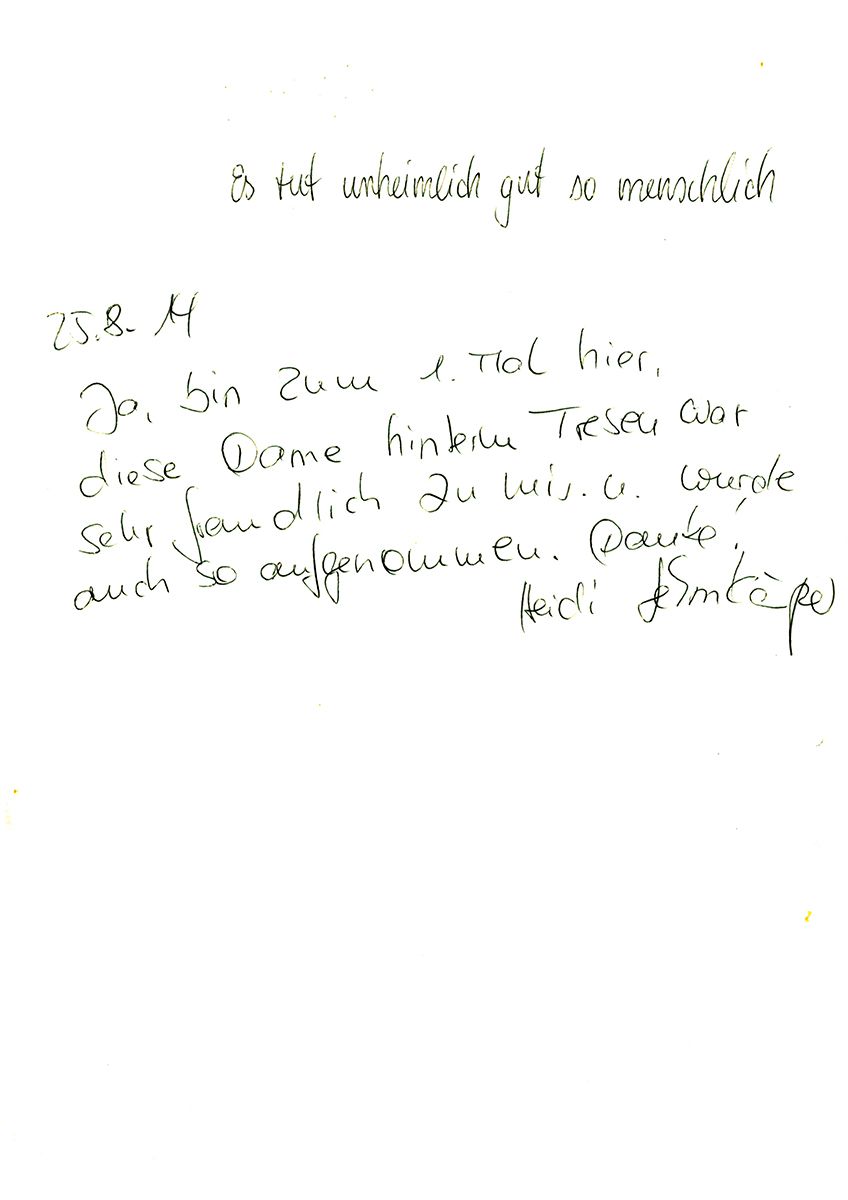 Es tut unheimlich gut so menschlich
25.8. 14
Ja, bin zum 1. Mal hier,
diese Dame hinterm Tresen war
sehr freundlich zu mir. u. wurde
auch so aufgenommen. Danke!
Heidi